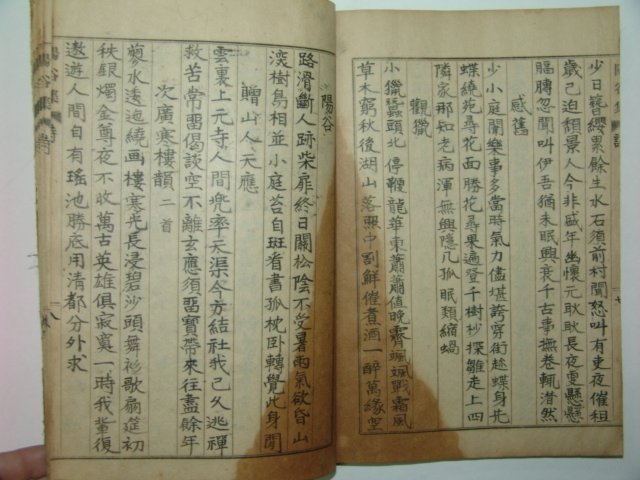 少日簪纓累餘生水石須前村聞怒叫有吏夜催租
歲已迫頹景人今非盛年坐懷元耿耿長夜更懸懸
腷膊忽聞叫伊吾猶未眠興衰千古事撫卷輒潸然
感舊
少小庭闈樂事多當時氣力儘堪誇穿街趂蝶身先
蝶繞苑尋花面勝花尋果遍登千樹杪探雛走上四
隣家那知老病渾無興隱几孤眠類縮蝸
觀獵
小獵蚕頭北停鞭龍華東蕭蕭値晩霽颯颯戰霜風
草木窮秋後湖山落照中割鮮催煮酒一醉萬緣空
陽谷
路滑斷人跡柴扉終日關松陰不受暑雨氣欲昏山
淡樹鳥相並小庭苔自斑看書孤枕臥轉覺此身閒
贈山人天應
雲裏上元寺人間兜率天渠今方結社我已久逃禪
救苦常留偈談空不離玄應須留寶帶來往盡餘年
次廣寒樓韻 二首
蓼水透迤繞画樓寒光長浸碧沙頭舞衫歌扇筵初
秩銀燭金尊夜不收萬古英雄俱寂寞一時我輩復
遨遊人間自有瑤池勝底用清都分外求